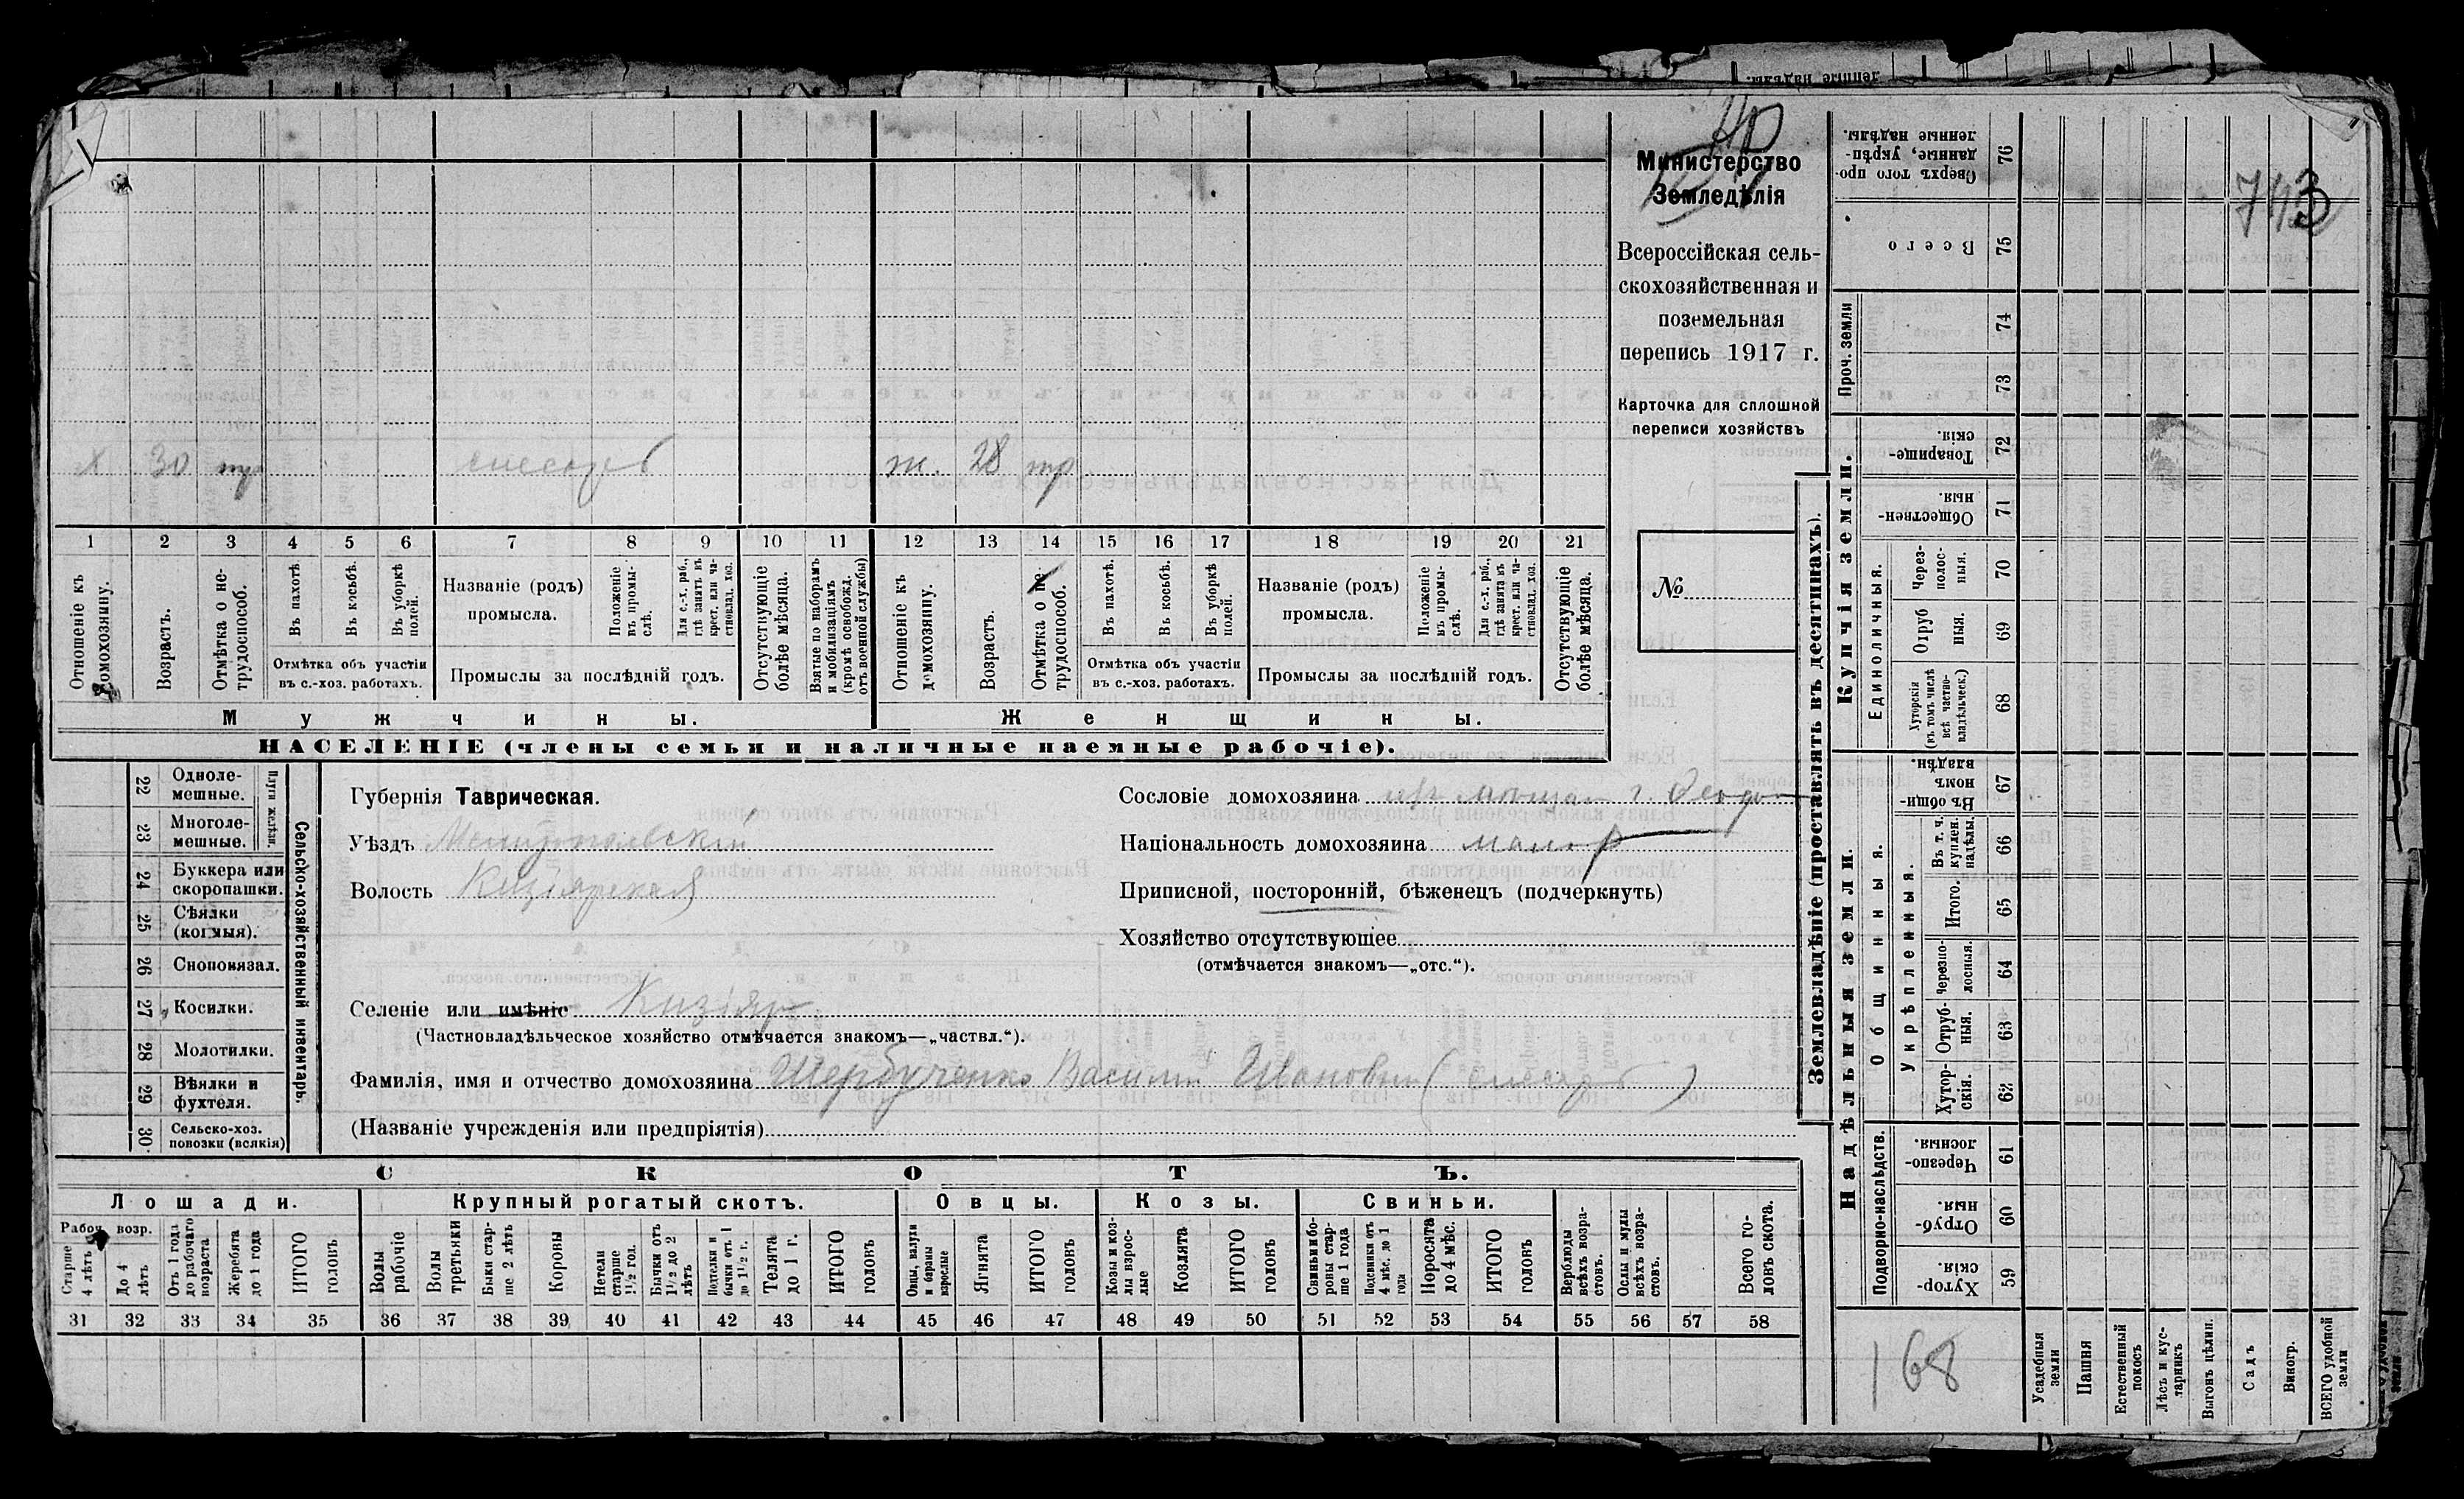 743
Министерство
Земледѣлія
Всероссійская сель-
скохозяйственная и
поземельная
перепись 1917 г.
Карточка для сплошной
переписи хозяйствъ
№
х 30 тр слесарь ж. 28 тр
1 2 3 4 5 6 7 8 9 10 11 12 13 14 15 16 17 18 19 20 21
Отношеніе къ домохозяину.
Возрастъ.
Отмѣтка о не-трудоспособ.
Въ пахотѣ.
Въ косьбѣ.
Въ уборкѣ полей.
Отмѣтка объ участіи
въ с.-хоз. работахъ.
Названіе (родъ)
промысла.
Положеніе въ промы-слѣ.
Для с.-х. раб., гдѣ занятъ въ крест. или ча-стновлад. хоз.
Промыслы за послѣдній годъ.
Отсутствующіе болѣе мѣсяца.
Взятые по наборамъ и мобилизаціямъ (кромѣ освобожд. отъ военной службы)
Отношеніе къ домохозяину.
Возрастъ.
Отмѣтка о не-трудоспособ.
Въ пахотѣ.
Въ косьбѣ.
Въ уборкѣ полей.
Отмѣтка объ участіи
въ с.-хоз. работахъ.
Названіе (родъ)
промысла.
Положеніе въ промы-слѣ.
Для с.-х. раб., гдѣ занята въ крест. или ча-стновлад. хоз.
Промыслы за послѣдній годъ.
Отсутствующіе болѣе мѣсяца.
Мужчины.
Женщины.
НАСЕЛЕНІЕ (члены семьи и наличные наемные рабочіе).
Сельско-хозяйственный инвентарь.
Плуги желѣзн.
22 Одноле-мешные.
23 Многоле-мешные.
24 Буккера или скоропашки.
25 Сѣялки (конныя).
26 Сноповязал.
27 Косилки.
28 Молотилки.
29 Вѣялки и фухтеля.
30 Сельско-хоз. повозки (всякія)
Губернія Таврическая.
Уѣздъ Мелитопольскій
Волость Кизіярская
Сословіе домохозяина изъ мѣщан г. Ѳеодо
Національность домохозяина малор
Приписной, посторонній, бѣженецъ (подчеркнуть)
Хозяйство отсутствующее
(отмѣчается знакомъ—„отс.“).
Селеніе или имѣніе Кизіяр
(Частновладѣльческое хозяйство отмѣчается знакомъ—„частвл.“).
Фамилія, имя и отчество домохозяина Щербученко Василій Ивановъ (слесарь)
(Названіе учрежденія или предпріятія)
СКОТЪ.
Лошади. Крупный рогатый скотъ. Овцы. Козы. Свиньи.
Рабоч. возр.
Старше 4 лѣтъ
До 4 лѣтъ
Отъ 1 года до рабочаго возраста
Жеребята до 1 года
ИТОГО головъ
Волы рабочіе
Волы третьяки
Быки стар-ше 2 лѣтъ
Коровы
Нетели старше 1½ год.
Бычки отъ 1½ до 2 лѣтъ
Подтелки и бычки отъ 1 до 1½ г.
Телята до 1 г.
ИТОГО головъ
Овцы, валухи и бараны взрослые
Ягнята
ИТОГО головъ
Козы и коз-лы взрос-лые
Козлята
ИТОГО головъ
Свиньи и бо-ровы стар-ше 1 года
Подсвинки отъ 4 мѣс. до 1 года
Поросята до 4 мѣс.
ИТОГО головъ
Верблюды всѣхъ возра-стовъ.
Ослы и мулы всѣхъ возра-стовъ.
Всего го-ловъ скота.
31 32 33 34 35 36 37 38 39 40 41 42 43 44 45 46 47 48 49 50 51 52 53 54 55 56 57 58
Землевладѣніе (проставлять въ десятинахъ).
Купчія земли.
Проч. земли
Единоличныя.
Сверхъ того про-данные, укрѣп-ленные надѣлы. 76
Всего 75
74
73
Товарище-скія. 72
Обществен-ныя. 71
Через-полос-ныя. 70
Отруб ныя. 69
Хуторскія (въ томъ числѣ всѣ частно-владѣльческ.) 68
Надѣльныя земли.
Общинныя.
Укрѣпленныя.
Въ общи-номъ владѣн. 67
Въ т. ч. куплен. надѣлы. 66
Итого. 65
Черезпо-лосныя. 64
Отруб-ныя. 63
Хутор-скія. 62
Подворно-наслѣдств.
Черезпо-лосныя 61
Отруб-ныя. 60
Хутор-скія. 59
168
Усадебныя земли
Пашня
Естественный покосъ
Лѣсъ и кус-тарникъ
Выгонъ цѣлин.
Садъ
Виногр.
ВСЕГО удобной земли